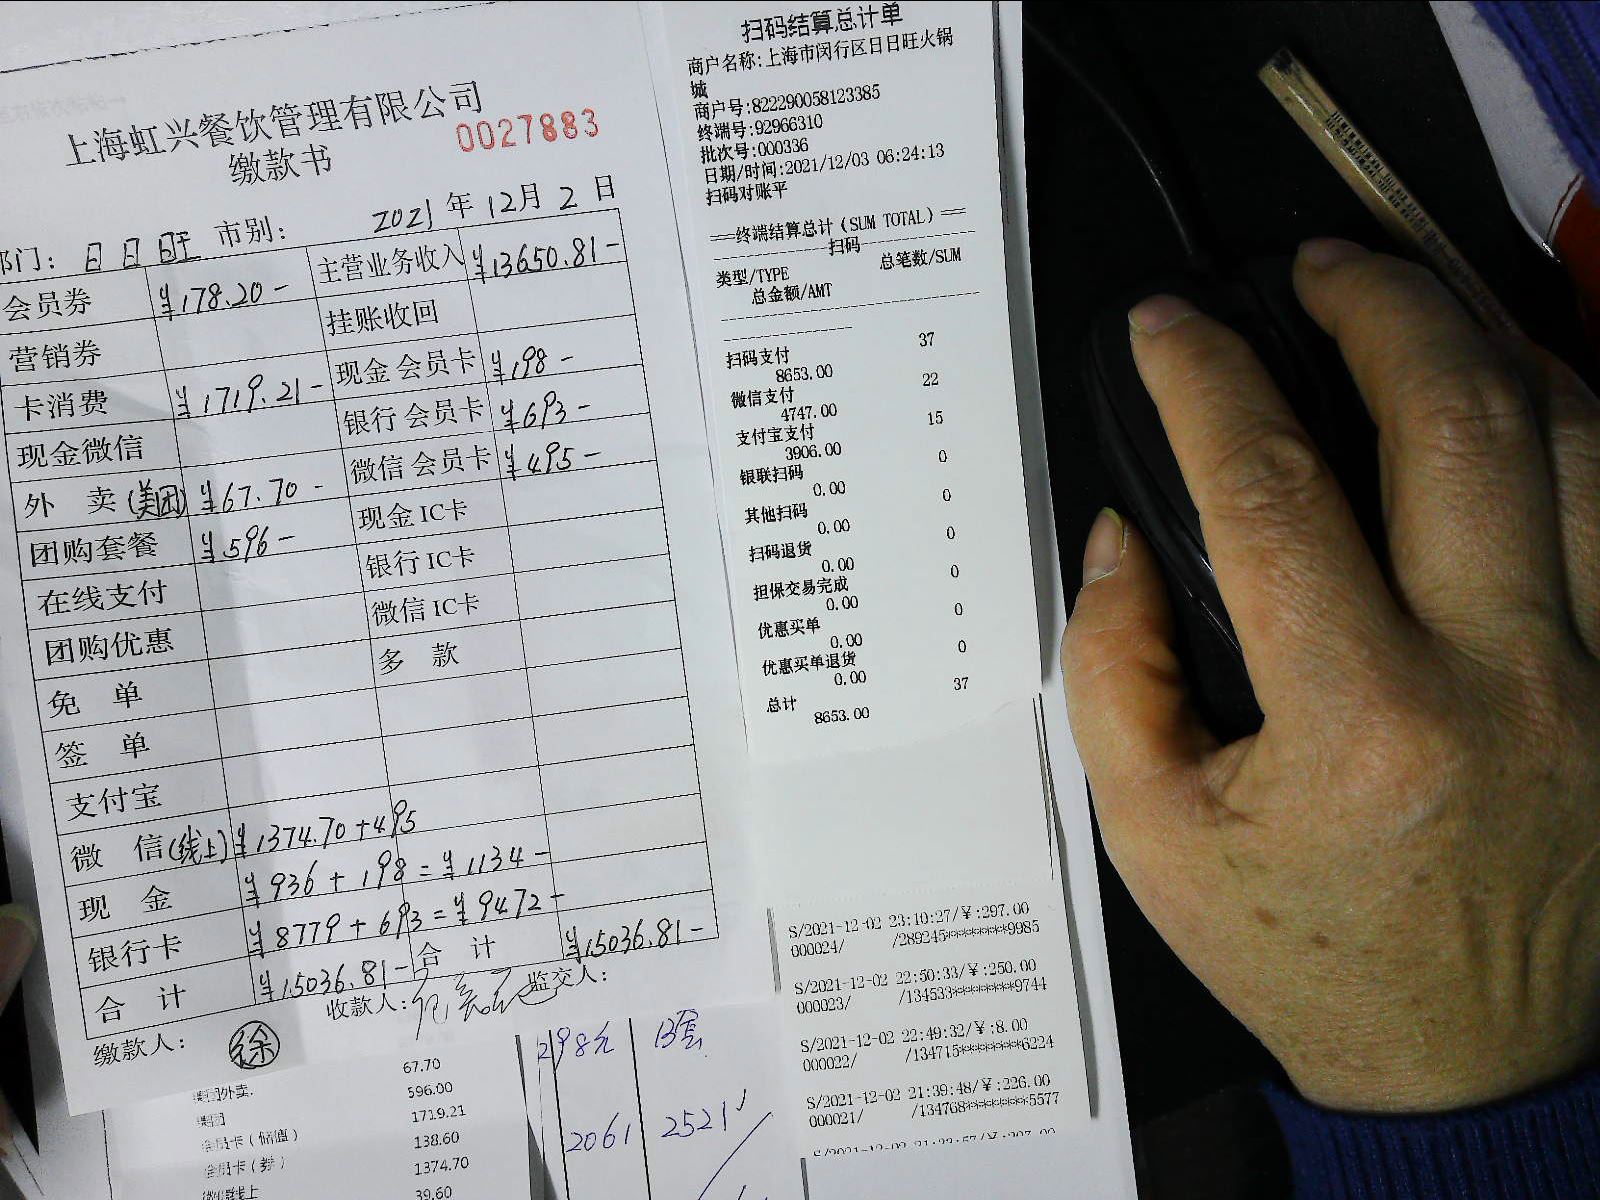 上海虹兴餐饮管理有限公司
缴款书
0027883
部门: 日日旺 市别: 2021年12月2日
会员券 ¥178.20- 主营业务收入 ¥13650.81-
营销券 挂账收回
卡消费 ¥1719.21- 现金会员卡 ¥198-
现金微信 银行会员卡 ¥693-
外 卖(美团) ¥67.70- 微信会员卡 ¥495-
团购套餐 ¥596- 现金IC卡
在线支付 银行IC卡
团购优惠 微信IC卡
免 单 多 款
签 单
支付宝
微 信(线上) ¥1374.70+495
现 金 ¥936+198=¥1134-
银行卡 ¥8779+693=¥9472-
合 计 ¥15036.81- 合 计 ¥15036.81-
缴款人: 徐 收款人: 监交人:
67.70
美团外卖. 596.00
美团 1719.21
会员卡(储值) 138.60
会员卡(券) 1374.70
微信线上 39.60
298元 13套
2061 2521
扫码结算总计单
商户名称:上海市闵行区日日旺火锅
城
商户号:822290058123385
终端号:92966310
批次号:000336
日期/时间:2021/12/03 06:24:13
扫码对账平
===终端结算总计(SUM TOTAL)===
扫码
类型/TYPE 总笔数/SUM
总金额/AMT
扫码支付 37
8653.00
微信支付 22
4747.00
支付宝支付 15
3906.00
银联扫码 0
0.00
其他扫码 0
0.00
扫码退货 0
0.00
担保交易完成 0
0.00
优惠买单 0
0.00
优惠买单退货 0
0.00
总计 37
8653.00
S/2021-12-02 23:10:27/¥:297.00
000024/ /289245********9985
S/2021-12-02 22:50:33/¥:250.00
000023/ /134533********9744
S/2021-12-02 22:49:32/¥:8.00
000022/ /134715********6224
S/2021-12-02 21:39:48/¥:226.00
000021/ /134768********5577